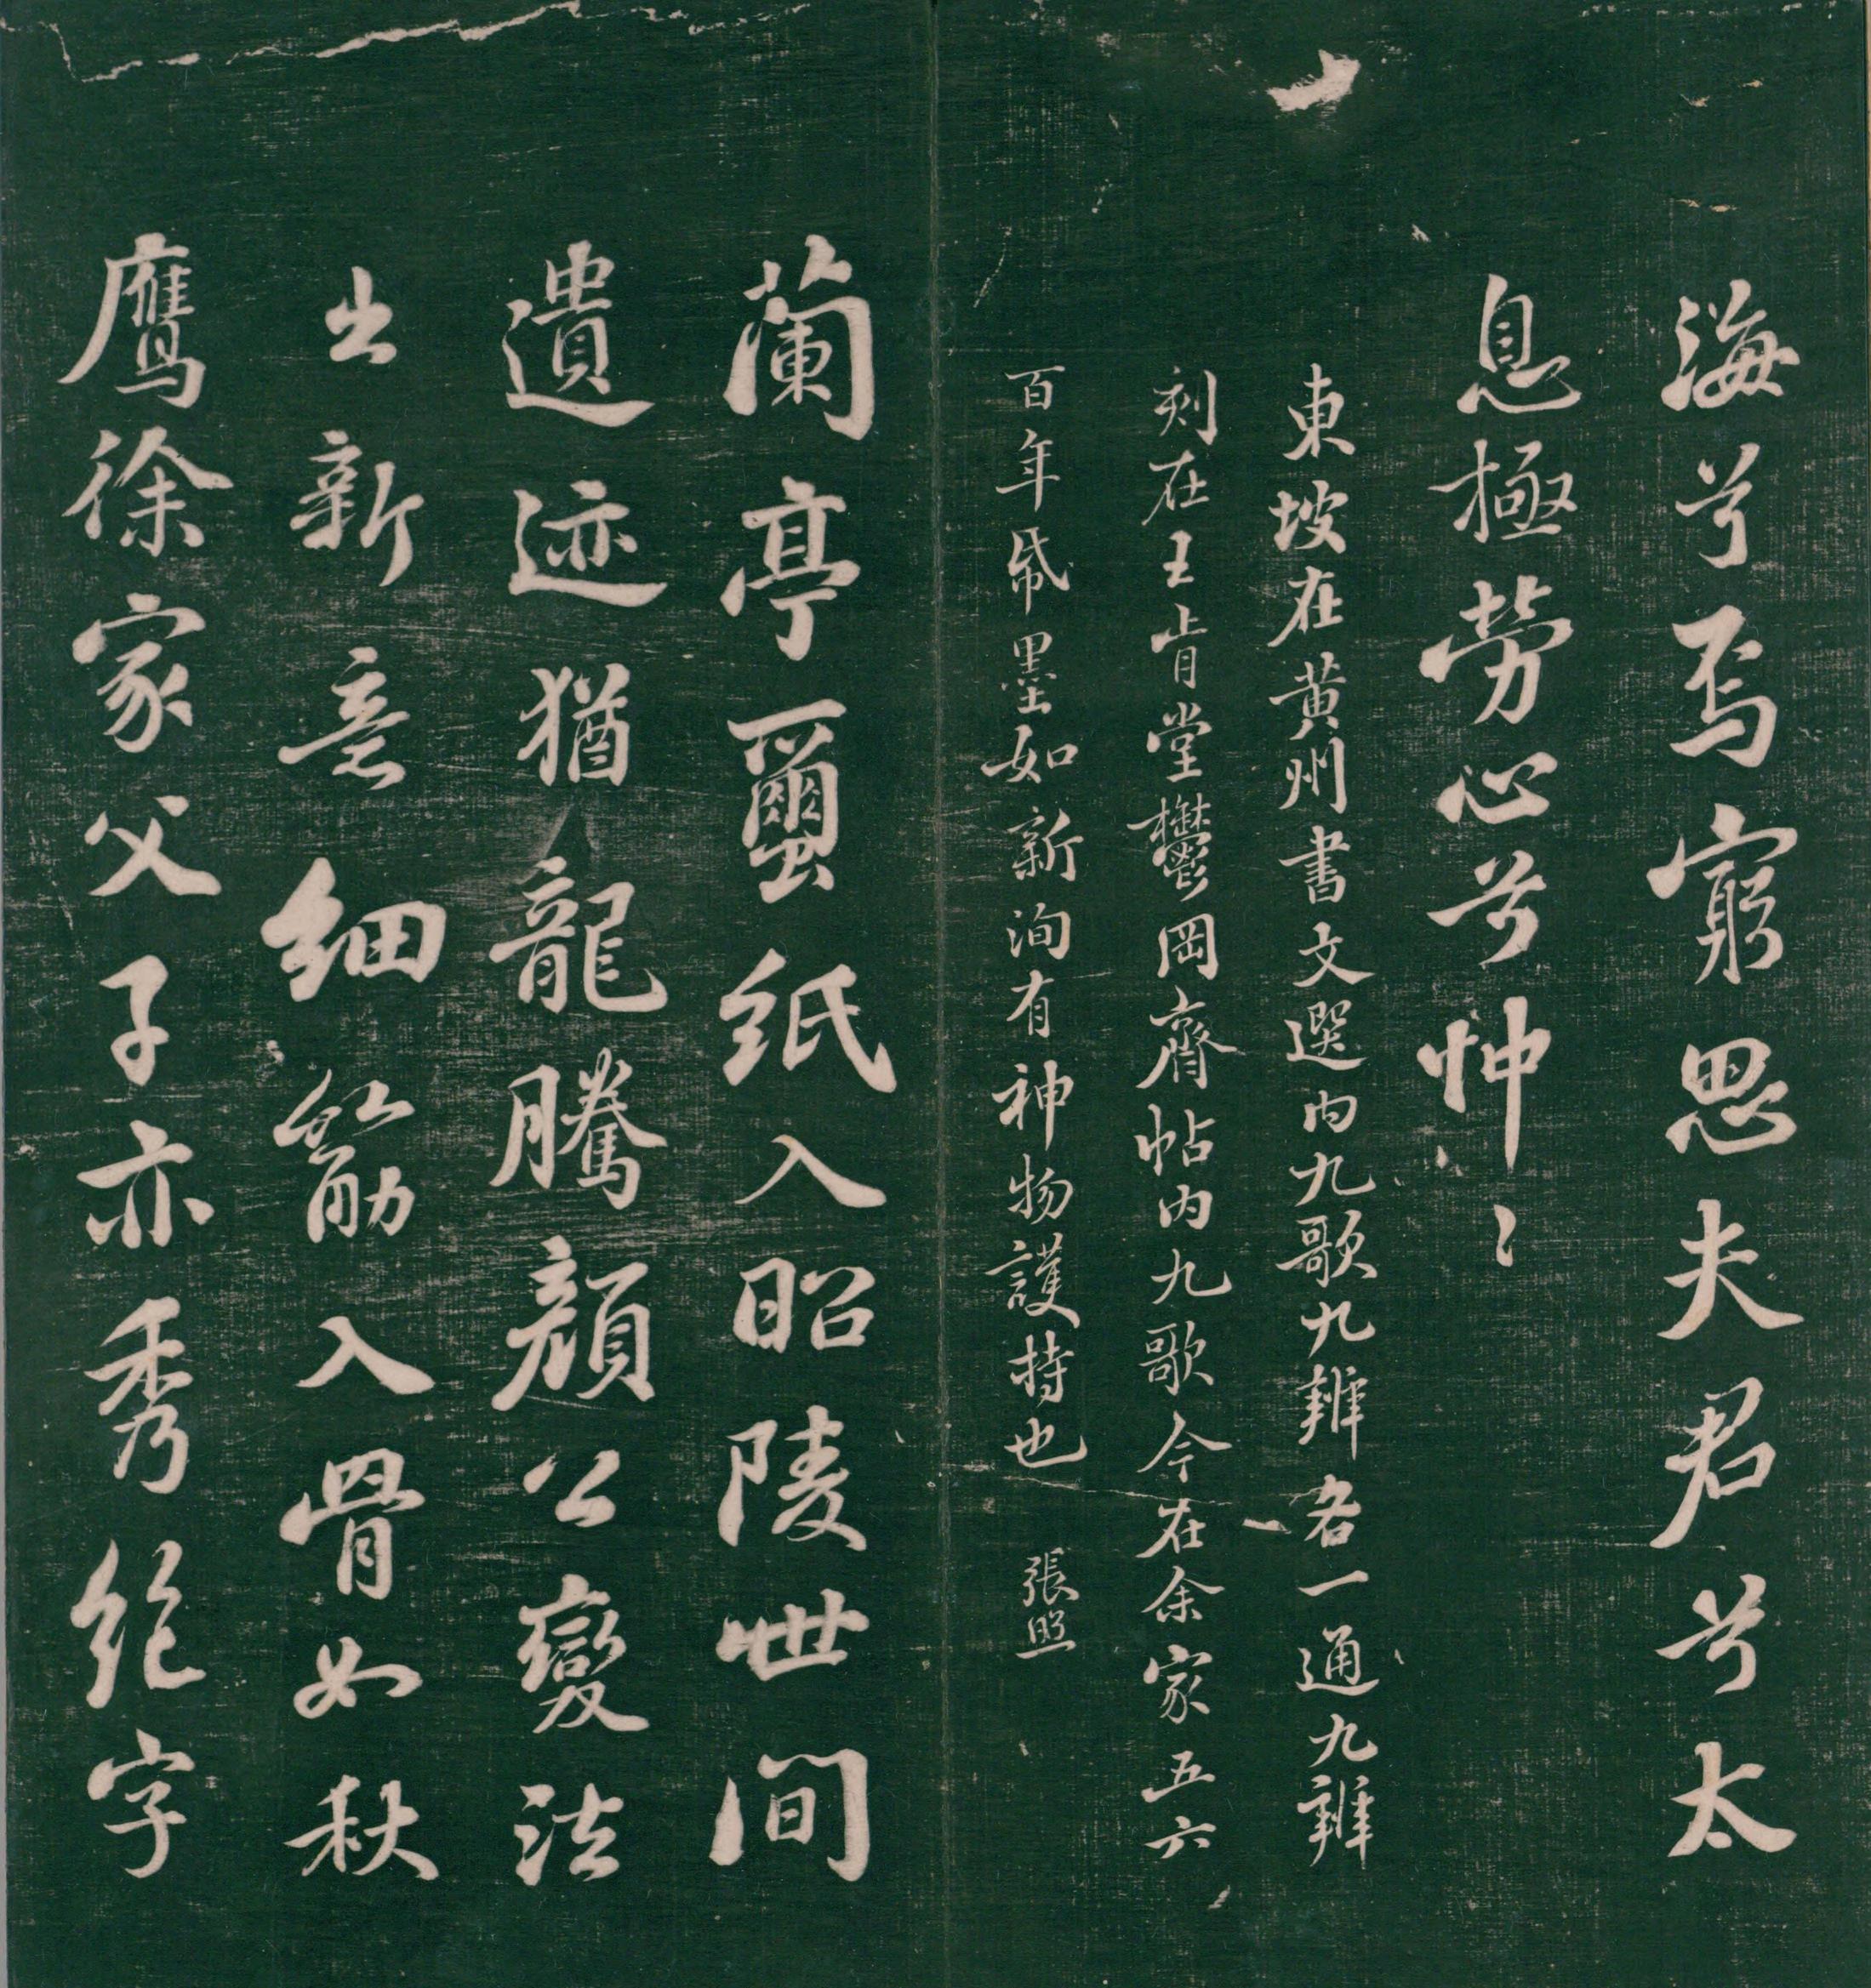 海兮焉窮思夫君兮太
息極勞心兮忡〻
東坡在黃州書文選內九歌九辨各一通九辨
刻在王肯堂欝岡齋帖內九歌今在余家五六
百年帋墨如新洵有神物護持也 張照
蘭亭蠒紙入昭陵世間
遺迹猶龍騰顏公變法
出新意細筋入骨如秋
鷹徐家父子亦秀絕字